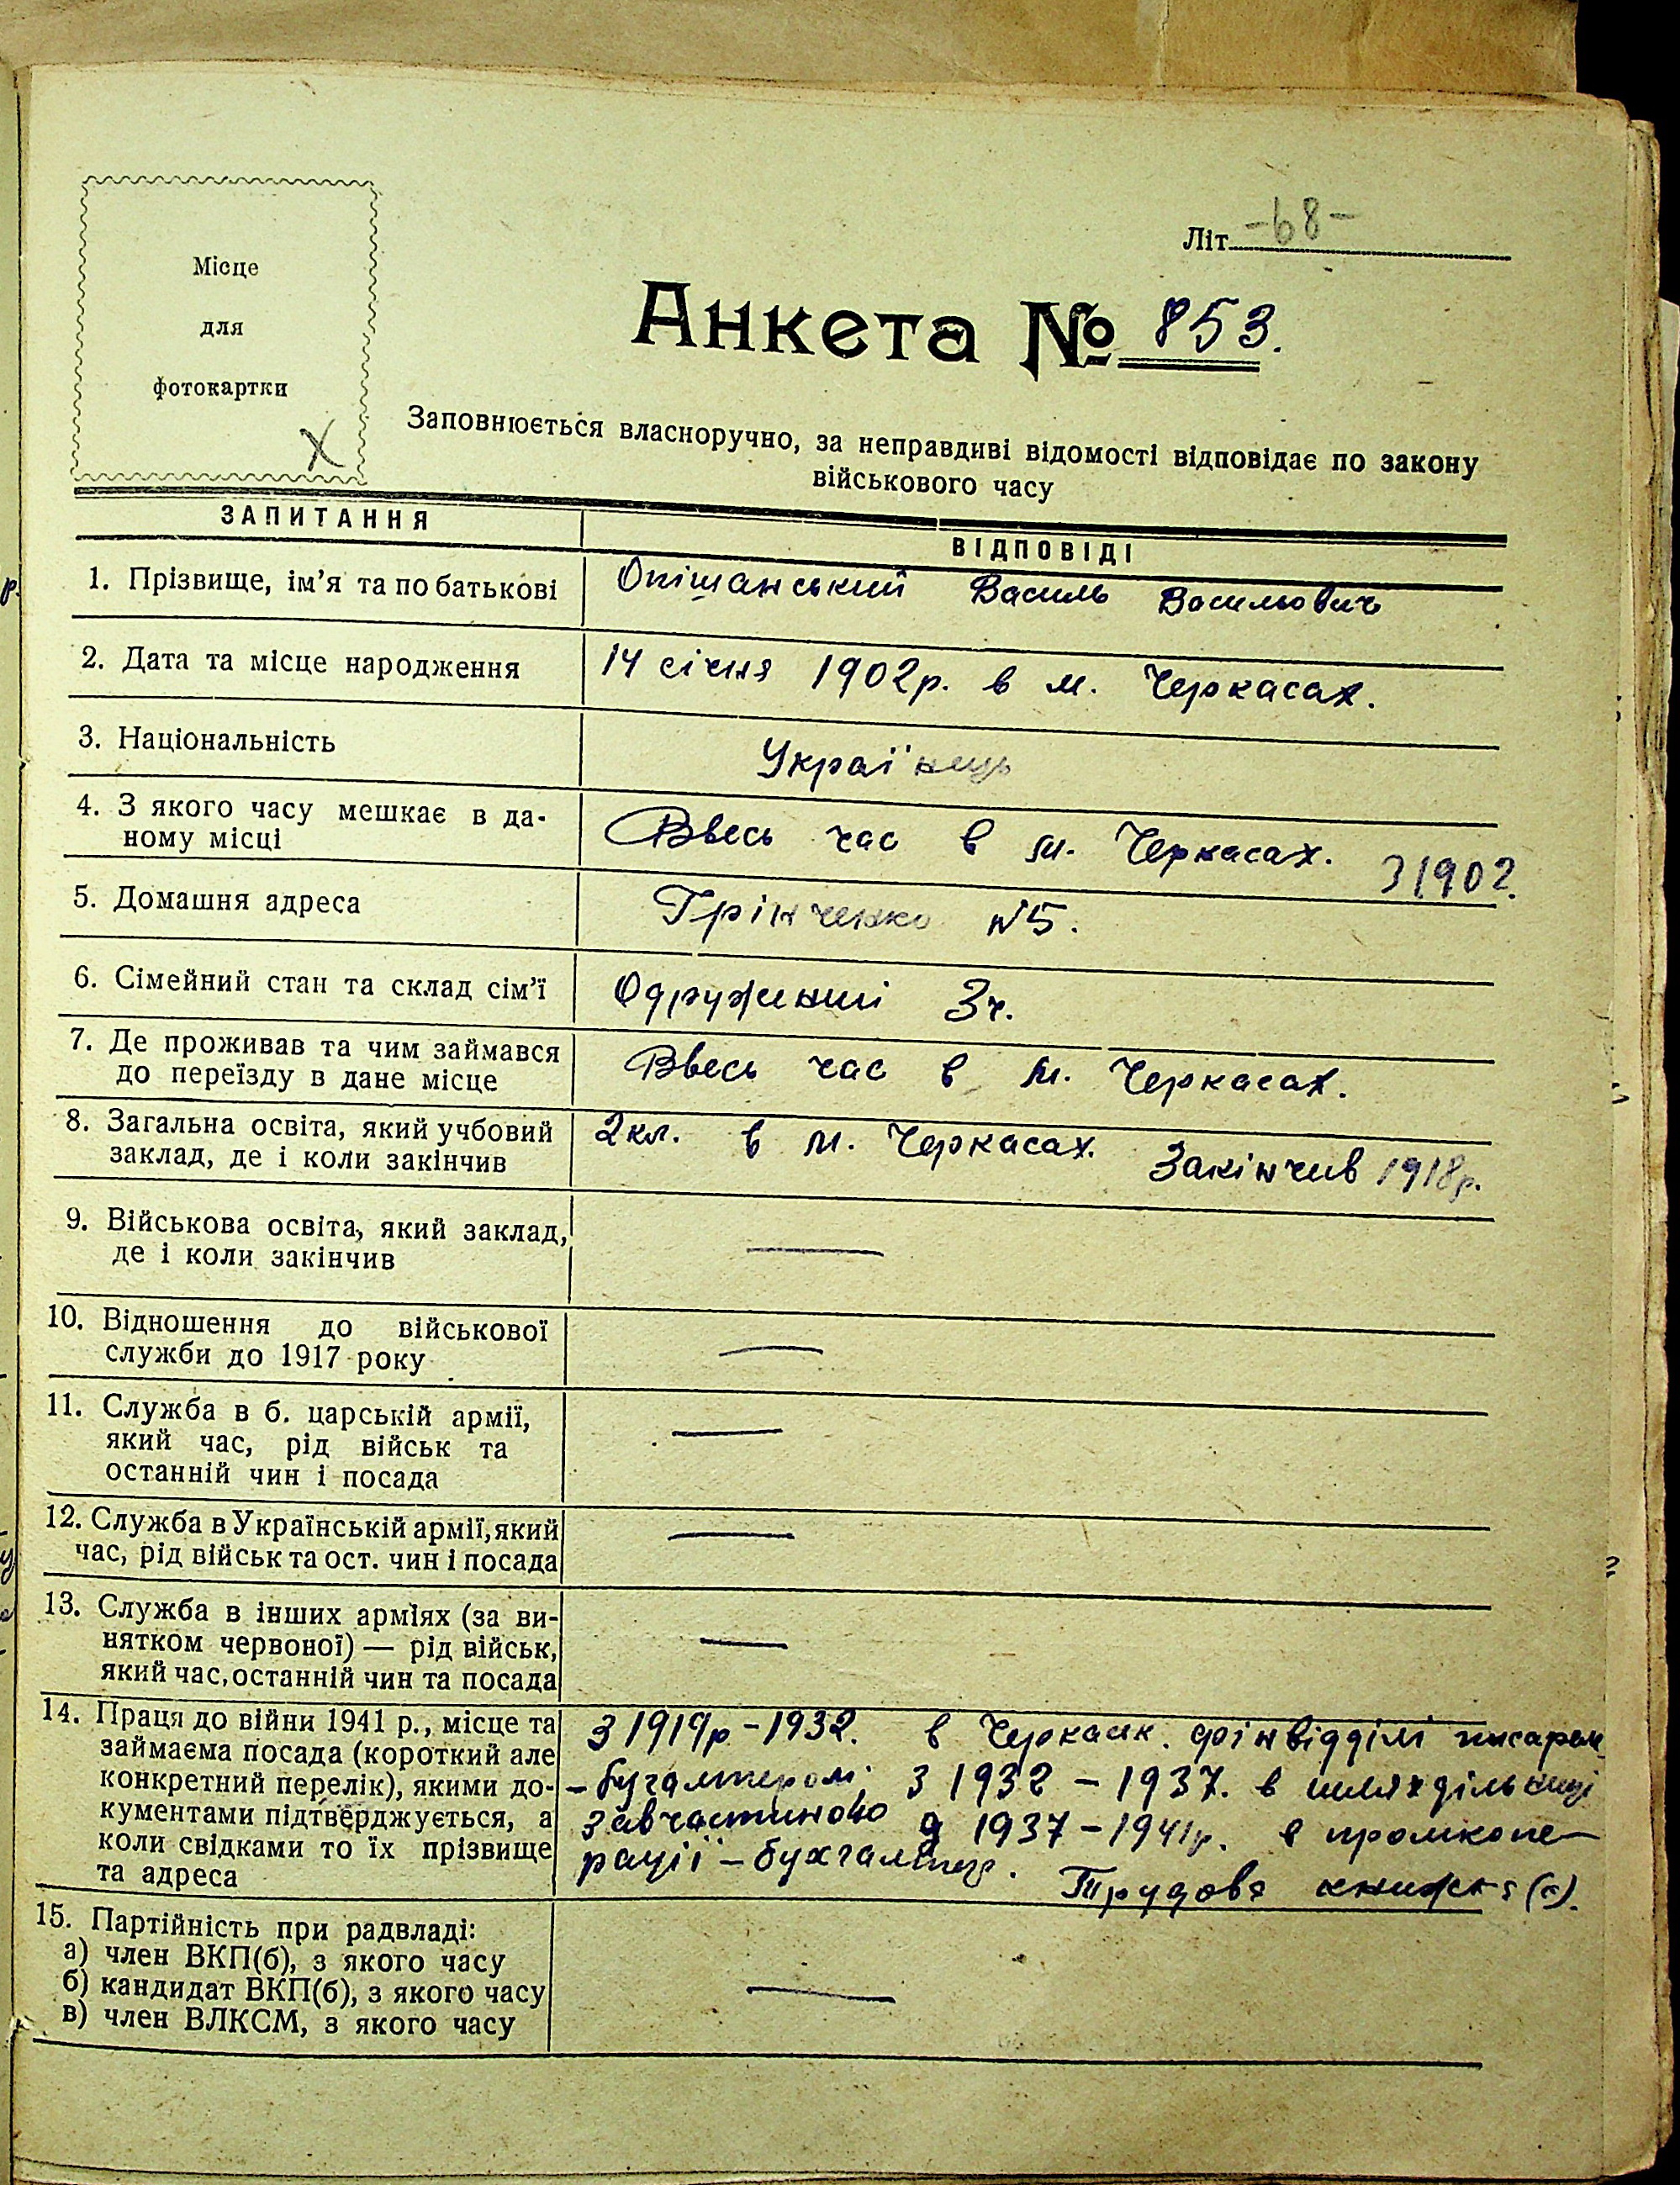 Літ. -68-
Місце
для
фотокартки
Х
Анкета № 853.
Заповнюється власноручно, за неправдиві відомості відповідає по закону
військового часу
ЗАПИТАННЯ
ВІДПОВІДІ
1. Прізвище, ім'я та по батькові
Опішанський Василь Васильович
2. Дата та місце народження
14 січня 1902р. в м. Черкасах.
3. Національність
Украї'нець
4. З якого часу мешкає в да-
ному місці
Ввесь час в м. Черкасах. З 1902.
5. Домашня адреса
Грінченко N5.
6. Сімейний стан та склад сім'ї
Одружений 3ч.
7. Де проживав та чим займався
до переїзду в дане місце
Ввесь час в м. Черкасах.
8. Загальна освіта, який учбовий
заклад, де і коли закінчив
2кл. в м. Черкасах. Закінчив 1918р.
9. Військова освіта, який заклад,
де і коли закінчив
—
10. Відношення до військової
служби до 1917 року
—
11. Служба в б. царській армії,
який час, рід військ та
останній чин і посада
—
12. Служба в Українській армії, який
час, рід військ та ост. чин і посада
—
13. Служба в інших арміях (за ви-
нятком червоної) — рід військ,
який час, останній чин та посада
—
14. Праця до війни 1941 р., місце та
займаєма посада (короткий але
конкретний перелік), якими до-
кументами підтверджується, а
коли свідками то їх прізвище
та адреса
З 1919р - 1932. в Черкаськ. фінвідділі писарем
- бугалтером; З 1932 - 1937. в шляхдільниці
завчастиною 1937 - 1941р. в промкопе-
рації - бухгалтер.
Трудова книжка
15. Партійність при радвладі:
а) член ВКП(б), з якого часу
б) кандидат ВКП(б), з якого часу
в) член ВЛКСМ, з якого часу
—